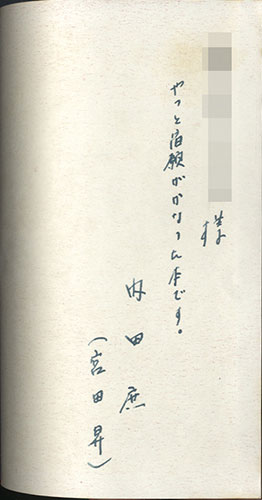 様
やっと宿願がかなった本です。
内田庶
（宮田昇）